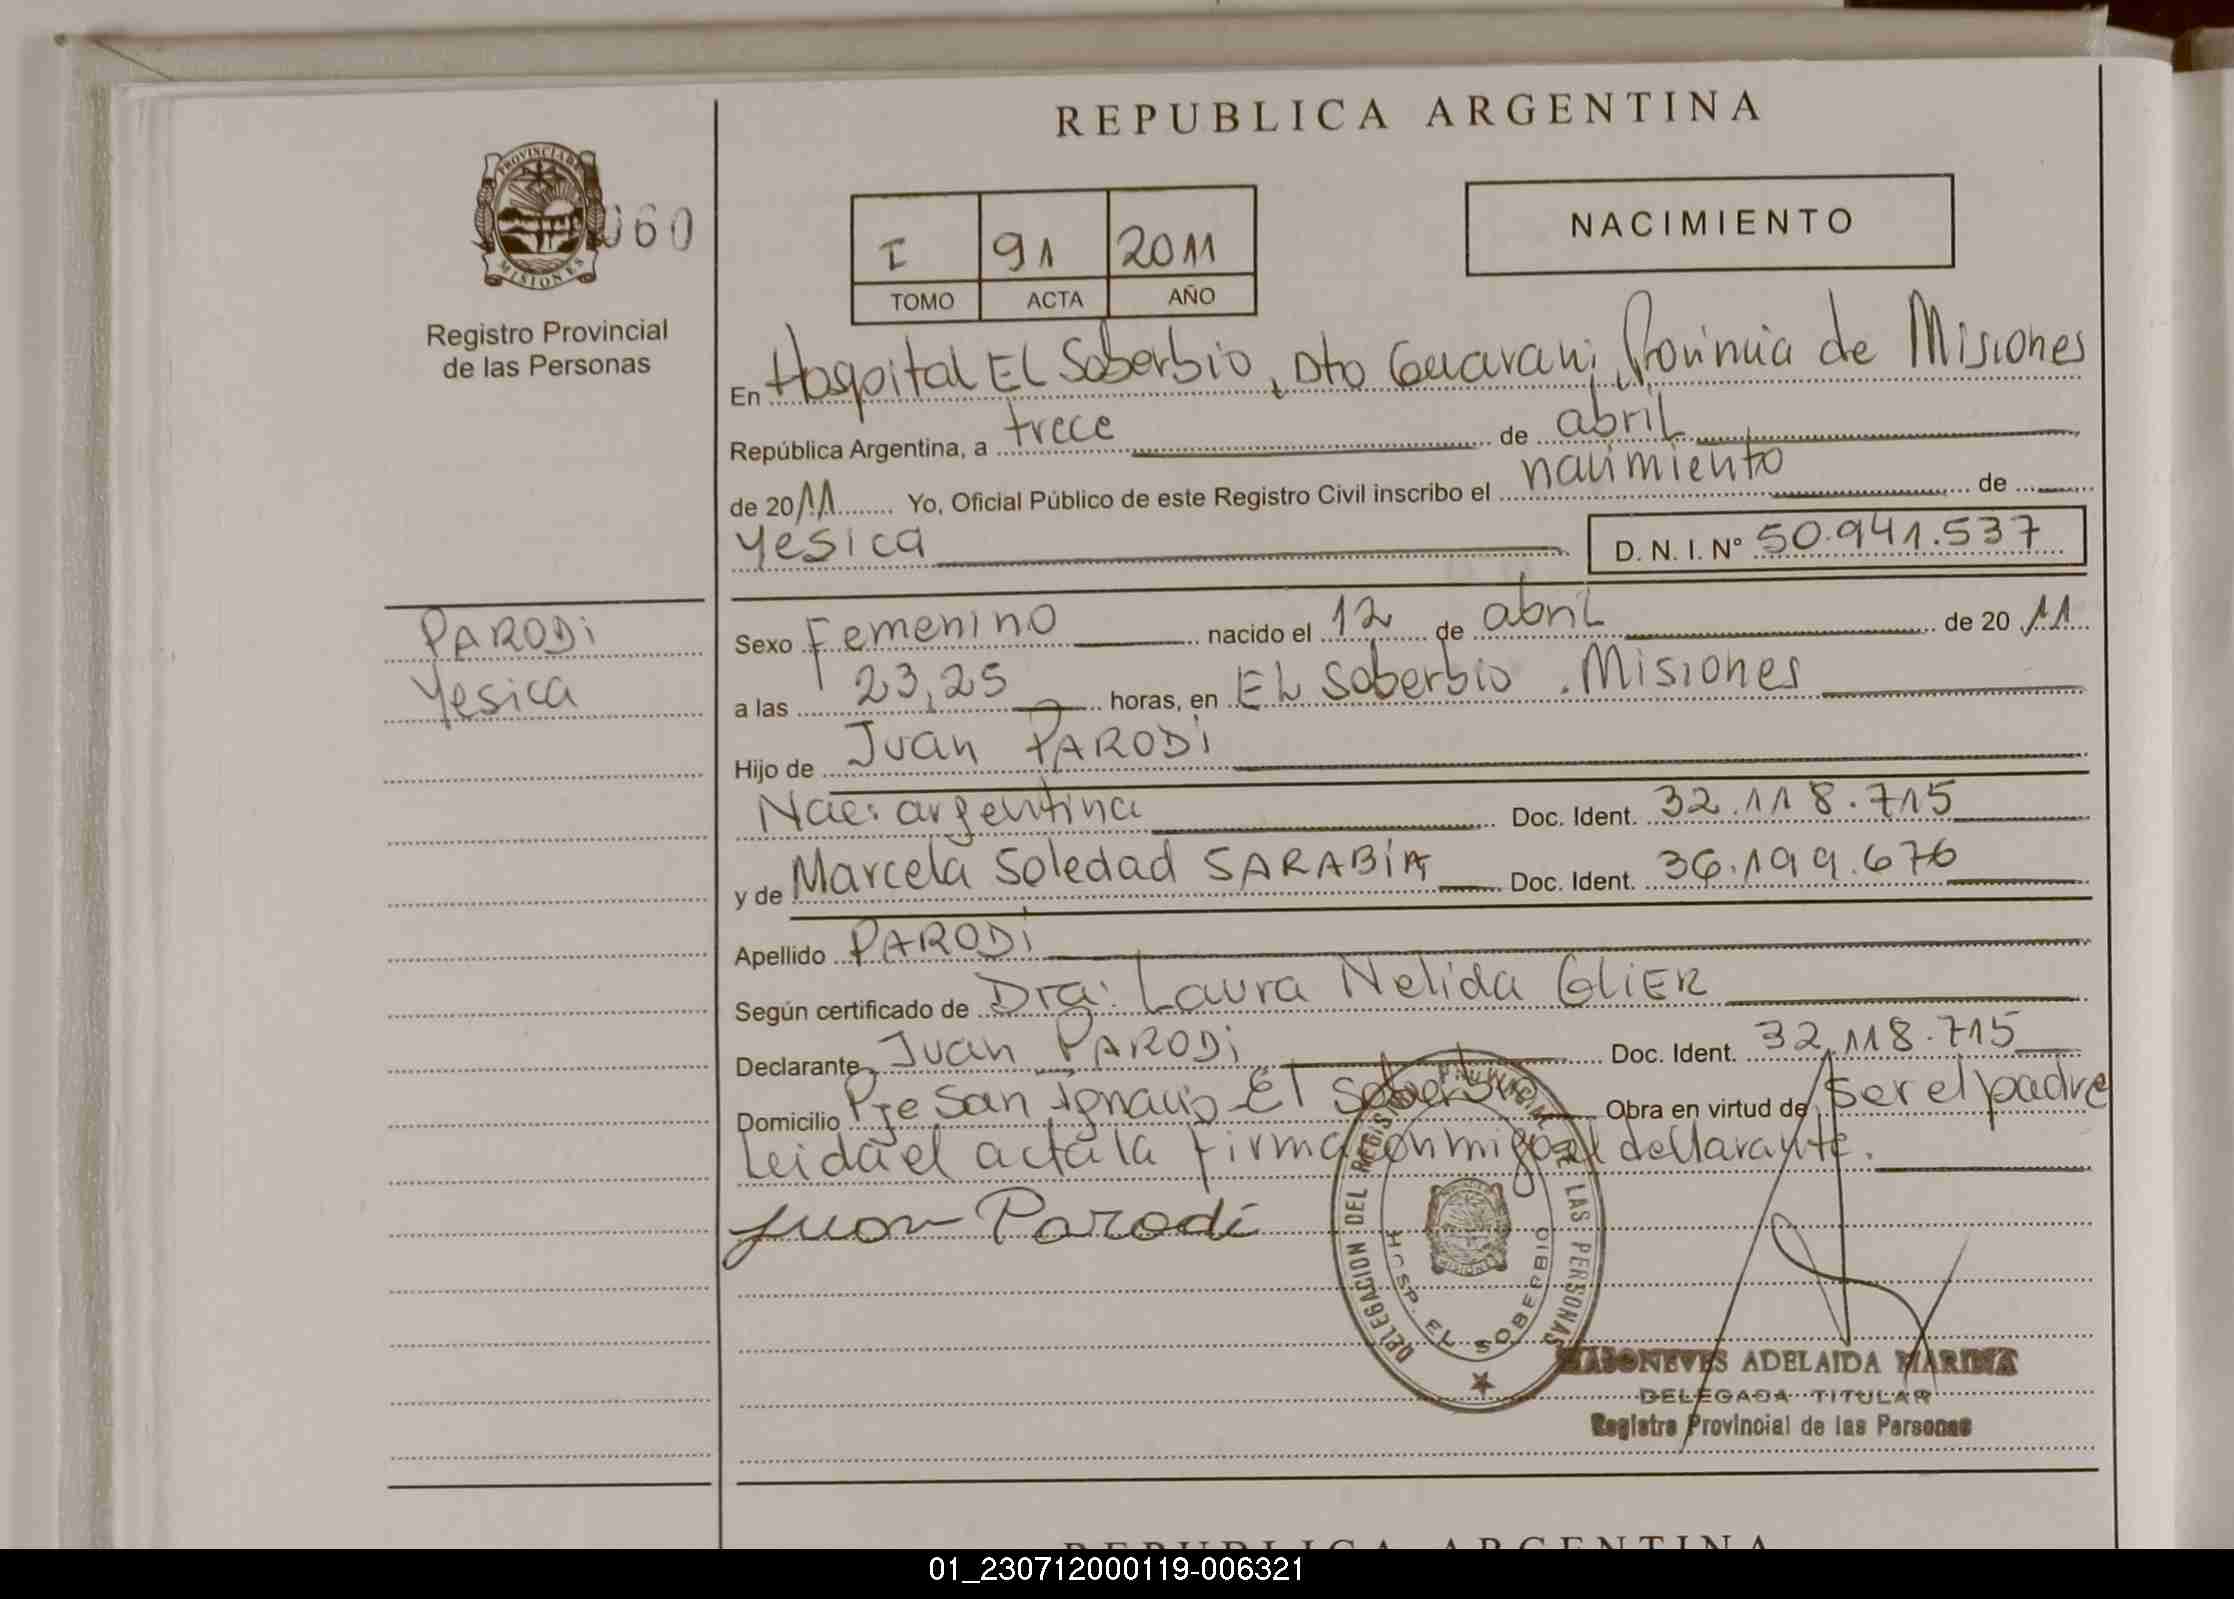 REPUBLICA ARGENTINA
PROVINCIA DE
MISIONES
060
Registro Provincial
de las Personas
I 91 2011
TOMO ACTA AÑO
NACIMIENTO
En Hospital EL Soberbio, Dto Guarani, Provincia de Misiones
República Argentina, a trece de abril
de 2011 Yo, Oficial Público de este Registro Civil inscribo el nacimiento de
Yesica D. N. I. N° 50.941.537
PARODi
Yesica
Sexo Femenino nacido el 12 de abril de 20 11
a las 23,25 horas, en EL Soberbio. Misiones
Hijo de Juan PARODi
Nac: argentina Doc. Ident. 32.118.715
y de Marcela Soledad SARABiA Doc. Ident. 36.199.676
Apellido PARODi
Según certificado de Dra: Laura Nelida GLiER
Declarante Juan PARODi Doc. Ident. 32.118.715
Domicilio Pje San Ignacio El Soberbio Obra en virtud de ser el padre
Leida el acta la firma conmigo el declarante.
Juan Parodi
DELEGACION DEL REGISTRO PROVINCIAL DE LAS PERSONAS
HOSP. EL SOBERBIO
MISIONES
ADELAIDA MARINA
DELEGADA TITULAR
Registro Provincial de las Personas
REPUBLICA ARGENTINA
01_230712000119-006321